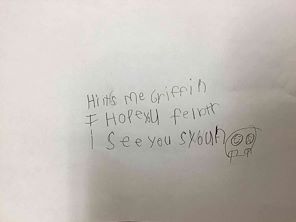 Hi it's me Griffin
I HOPE YU felbttr
I See you sxoun